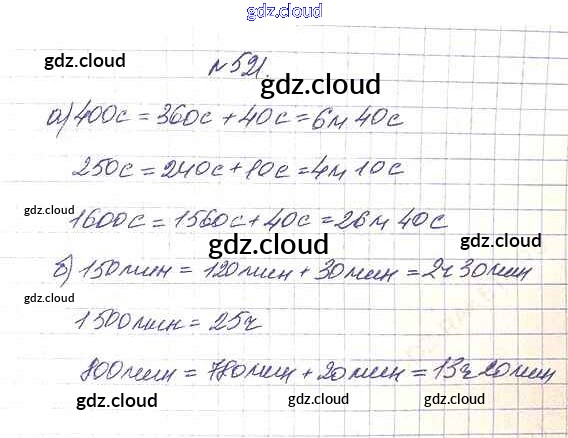 gdz.cloud
gdz.cloud
№ 521.
gdz.cloud
gdz.cloud
а) 400с = 360с + 40с = 6м 40с
250с = 240с + 10с = 4м 10с
gdz.cloud
1600с = 1560с + 40с = 26м 40с
gdz.cloud
gdz.cloud
б) 150мин = 120мин + 30мин = 2ч 30мин
gdz.cloud
1500мин = 25ч
gdz.cloud
800мин = 780мин + 20мин = 13ч 20мин
gdz.cloud
gdz.cloud
gdz.cloud